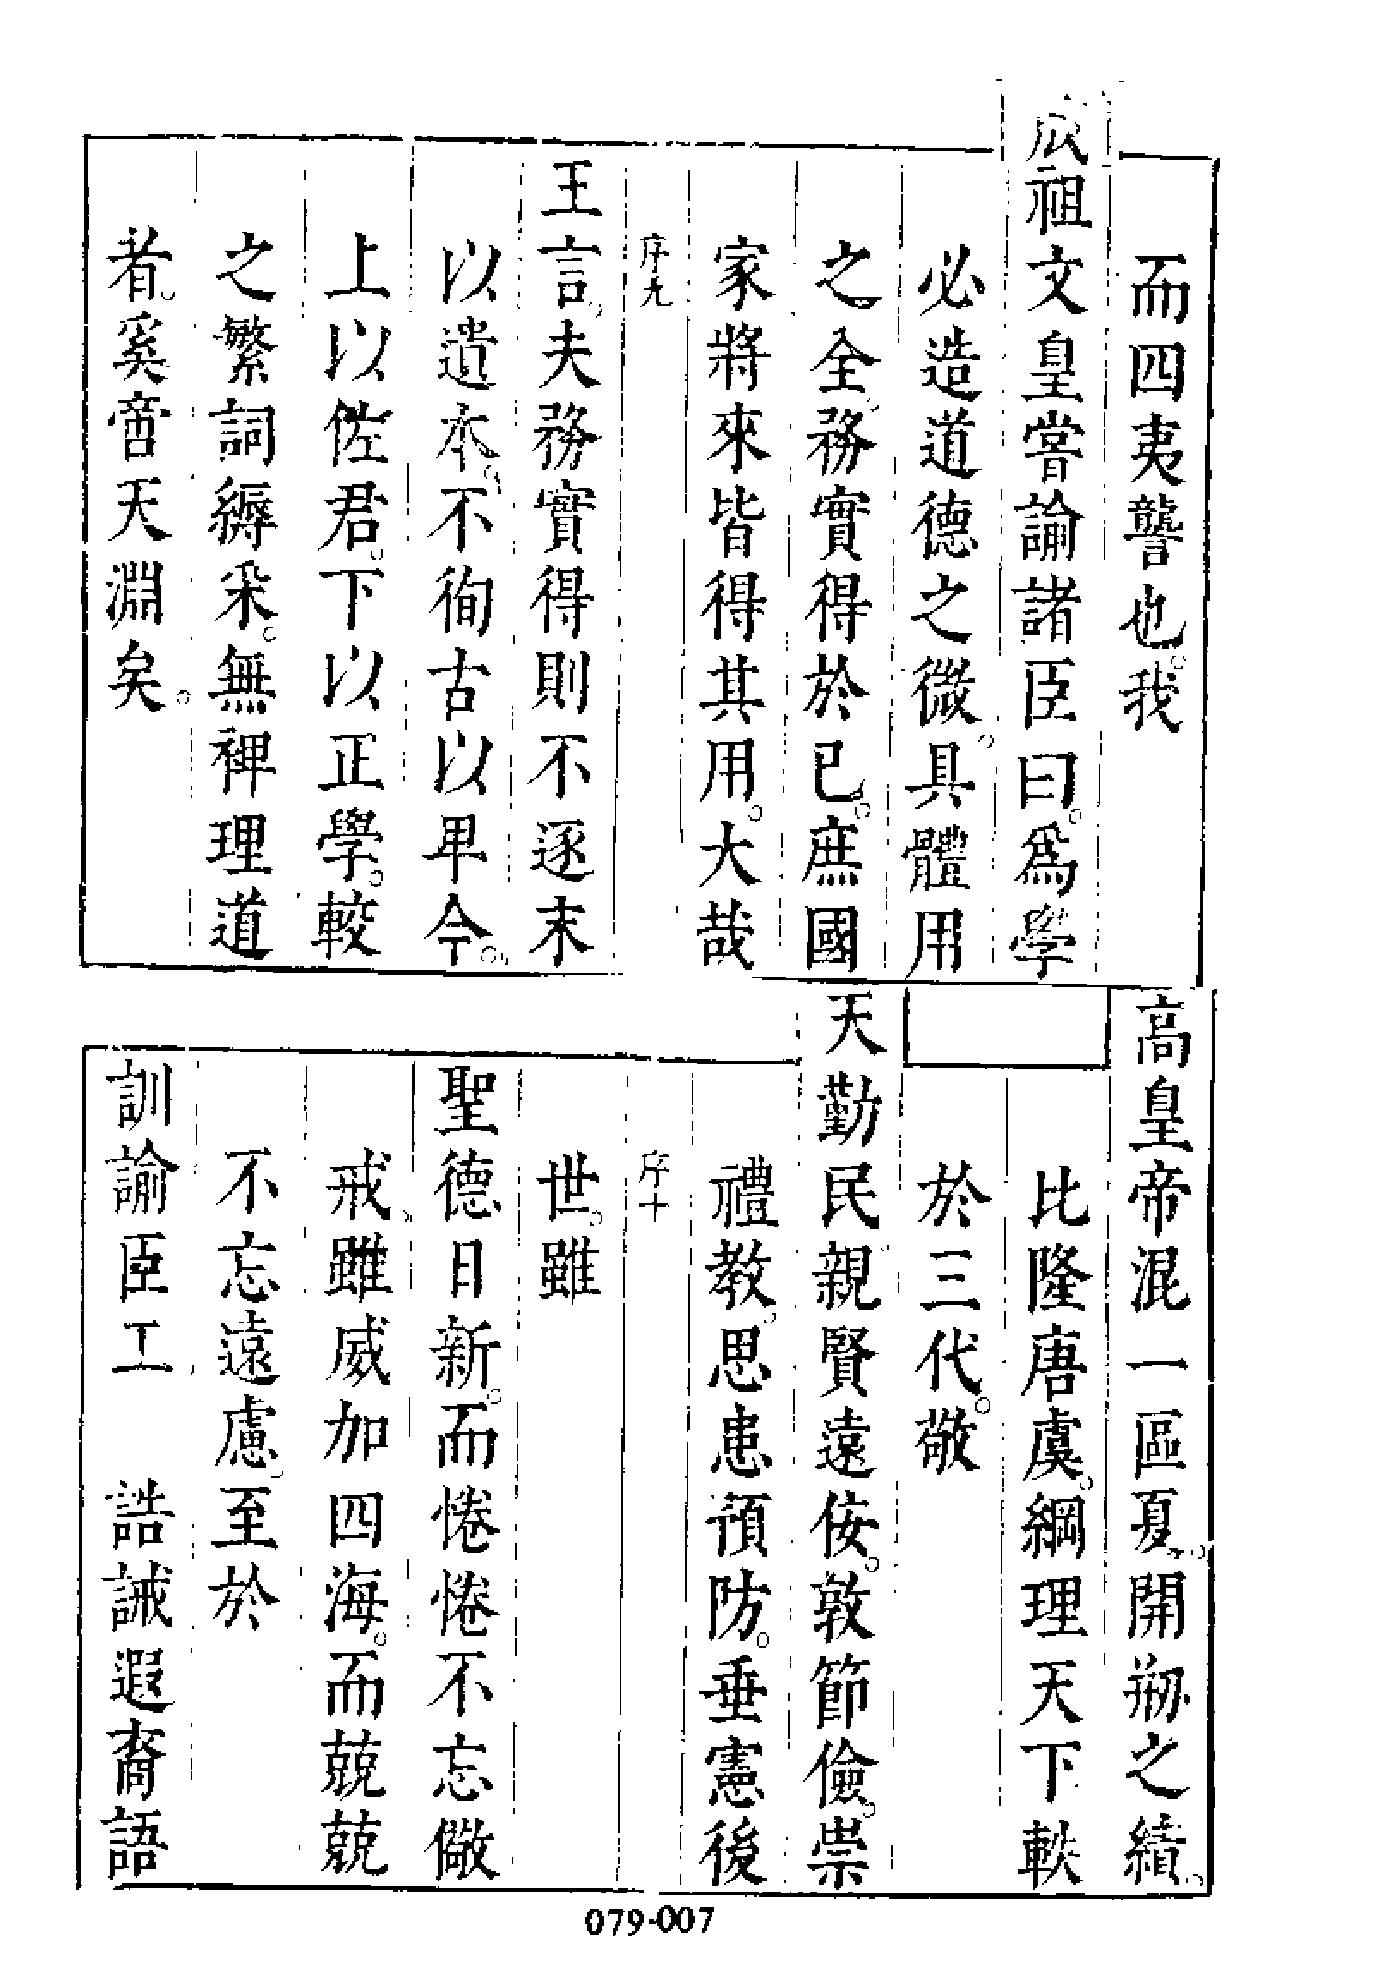 而四夷讋也。我
成祖文皇嘗諭諸臣曰。爲學
必造道德之微。具體用
之全。務實得於已。庶國
家將來皆得其用。大哉
序九
王言。夫務實得則不逐末
以遺本。不徇古以卑今。
上以佐君。下以正學。較
之繁詞縟采。無裨理道
者。奚啻天淵矣。
高皇帝混一區夏。開剏之績。
比隆唐虞。綱理天下軼
於三代。敬
天勤民。親賢遠佞。敦節儉。崇
禮教。思患預防。垂憲後
序十
世。雖
聖德日新。而惓惓不忘儆
戒。雖威加四海。而兢兢
不忘遠慮。至於
訓諭臣工　誥誡遐裔語
079-007